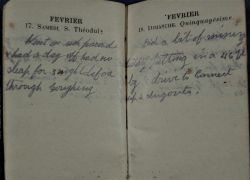 FEVRIER
17. SAMEDI. S. Théodule
Went on sick parade
had a day off had no
sleep for night before
through coughing
FEVRIER
18. DIMANCHE. Quinquagésime
Did a bit of mining
putting in a
drive to connect
dugouts